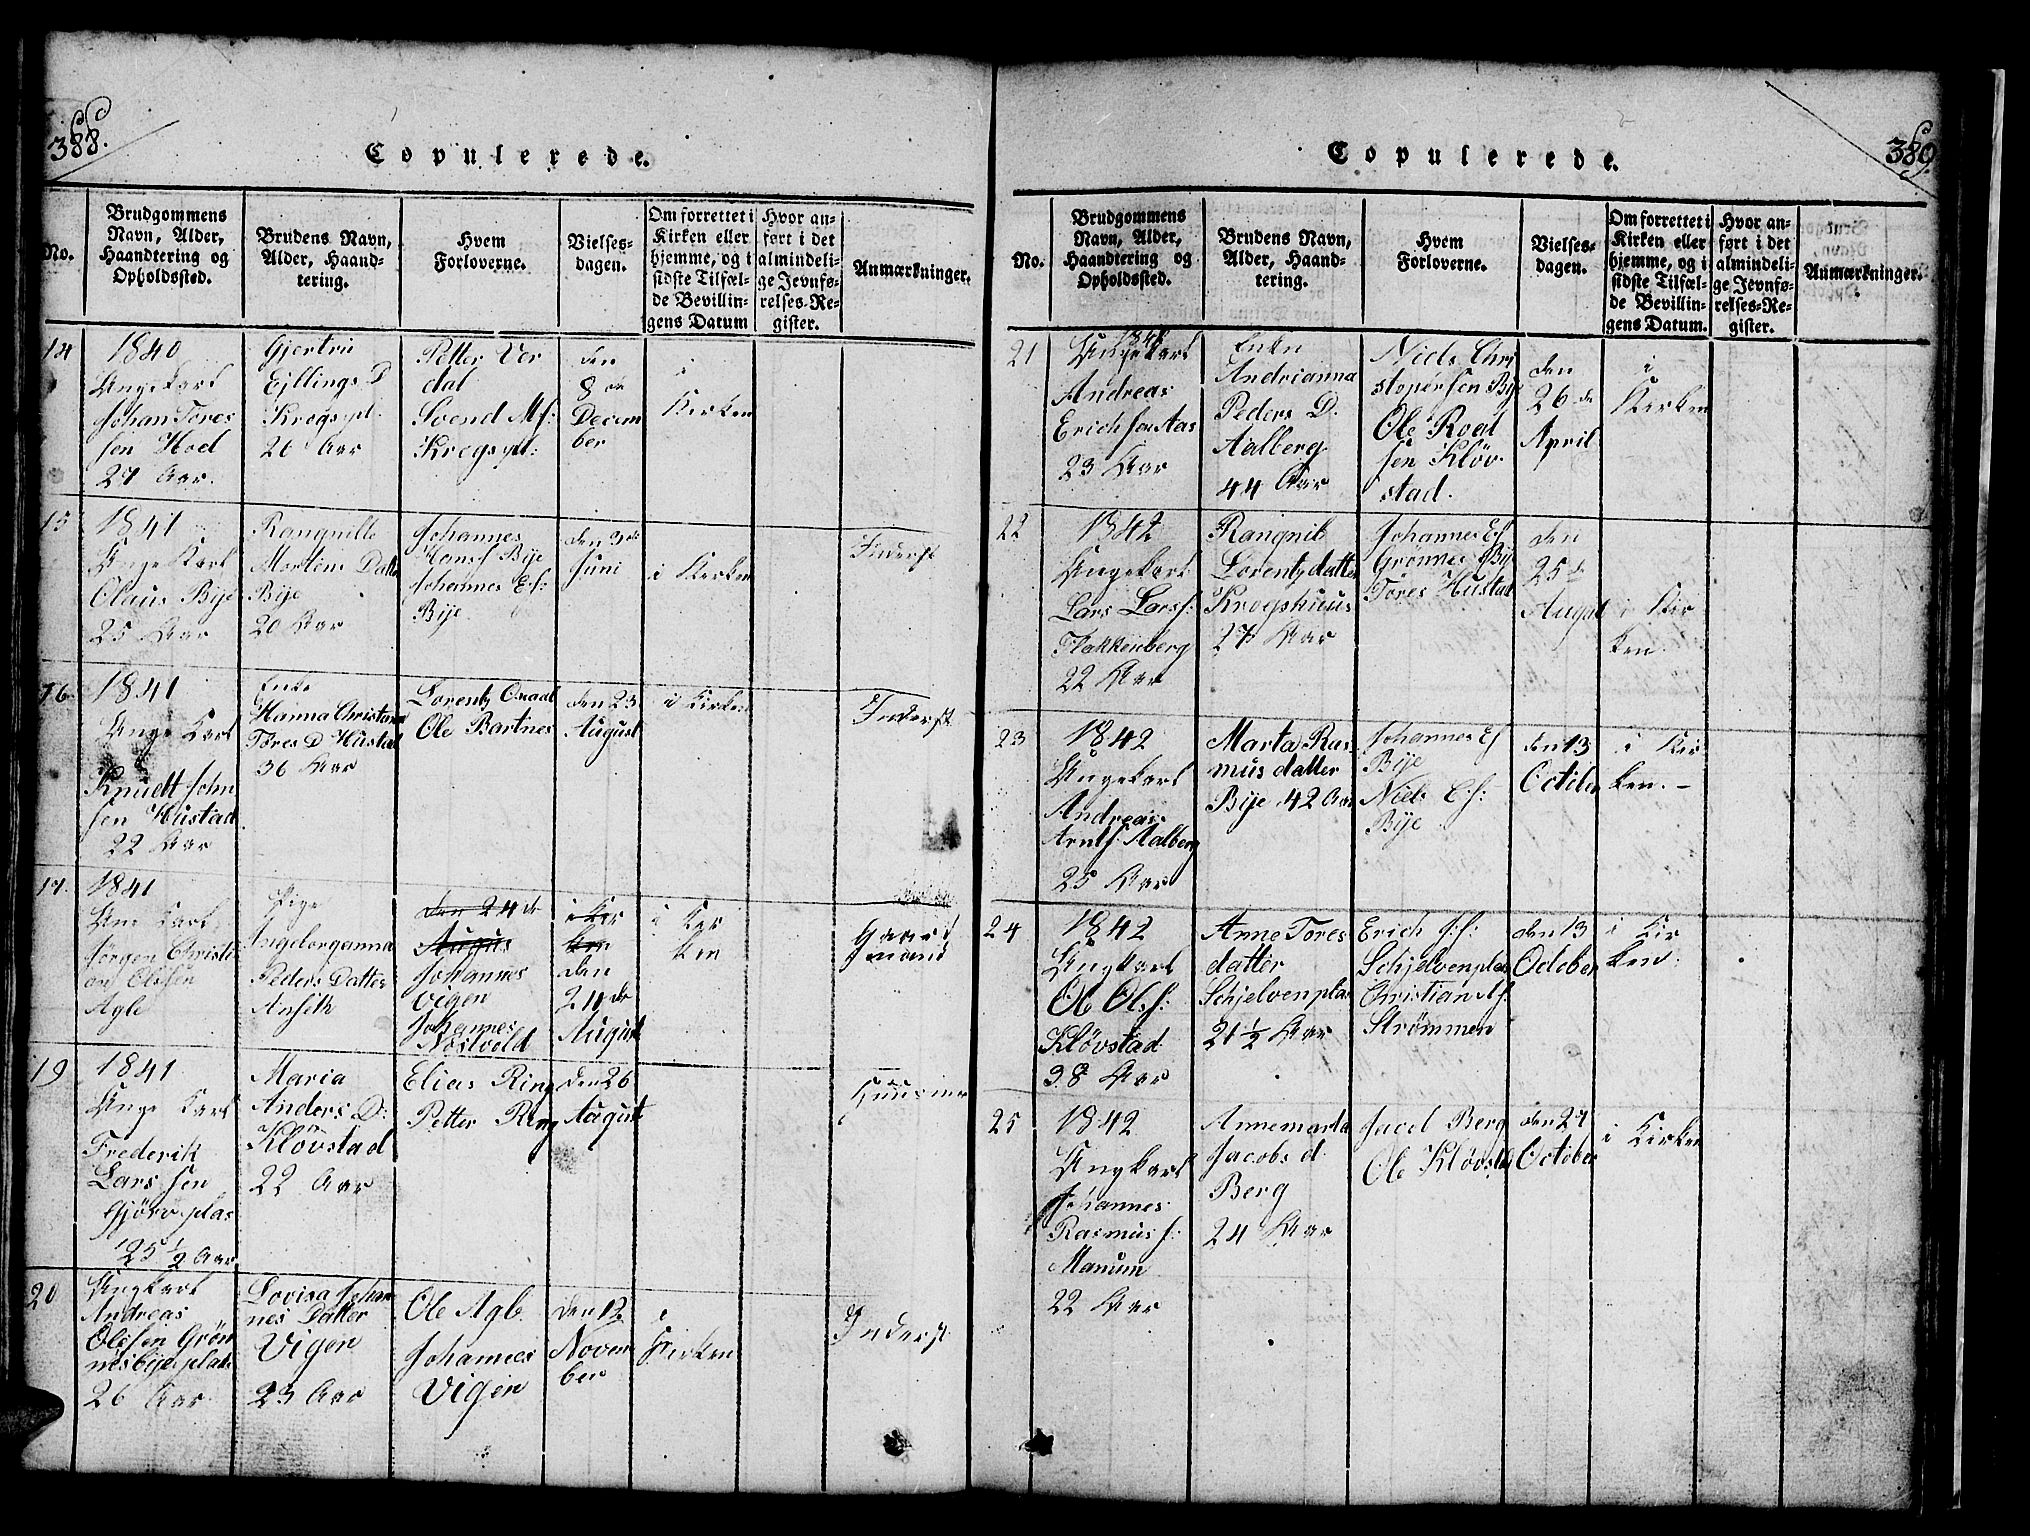 388.
Copulerede.
No.
Brudgommens
Navn, Alder,
Haandtering og
Opholdssted.
Brudens Navn,
Alder, Haand-
tering.
Hvem
Forloverne.
Vielses-
dagen.
Om forrettet i
Kirken eller
hjemme, og i
sidste Tilfæl-
de Bevillin-
gens Datum
Hvor an-
ført i det
almindeli-
ge Jevnfø-
relses-Re-
gister.
Anmærkninger.
14
1840
Ungekarl
Johan Tores
sen Hoel
27 Aar.
Gjertru
Ejllings D
Krogspl.
26 Aar
Petter Ver
dal
Svend Ms:
Krogspl:
den
8 de
Decem
ber
i
Kirken
15
1841
Unge Karl
Olaus Bije
25 Aar
Rangnille
Mortens Datter
Bije
20 Aar
Johannes
Hansf Bije
Johannes Es:
Bije
den 3 de
Juni
i Kirken
Inderst
16
1841
Unge Karl
Knudt John
sen Hustad
22 Aar
Enke
Hanna Christian
Tores D Hustad
36 Aar
Lorentz Qvaal
Ole Bartnes
den 23
August
i Kirken
Inderst
17.
1841
Une Karl
Jørgen Christi
an Olssen
Agle
Pige
Angelorganna
Peders Datter
den 24 de
Augus
Johannes
Vigen
Johannes
Nostvold
i Kir
ken
den
24 de
August
i Kir
ken
Gaard
mand
19
1841
Unge Karl
Frederik
Lars sen
Gjørv plas
25 1/2 Aar
Maria
Anders D:
Kløvstad
22 Aar
Elias Ring
Petter Ring
den 26
August
Huusmn
20
Ungkarl
Andreas
Olssen Grøn
nesbijeplads
26 Aar
Lovisa Johan
nes Datter
Vigen
23 Aar
Ole Agle
Johannes
Vigen
den 12
Novem
ber
i
Kirken
Inderst
389.
Copulerede.
No.
Brudgommens
Navn, Alder,
Haandtering og
Opholdssted.
Brudens Navn,
Alder, Haand-
tering.
Hvem
Forloverne.
Vielses-
dagen.
Om forrettet i
Kirken eller
hjemme, og i
sidste Tilfæl-
de Bevillin-
gens Datum.
Hvor an-
ført i det
almindeli-
ge Jevnfø-
relses-Re-
gister.
Anmærkninger.
21
Ungekarl
Andreas
Erichsen Aas
23 Aar
Enke
Andrianna
Peders D.
Aalberg
44 Aar
Niels Chri
stopersen Bije
Ole Roal
sen Kløv
stad.
den
26 de
April
i
Kirken
22
1842
Ungekarl
Lars Lars:
Flakkenberg
22 Aar
Rangnil
Lorentzdatter
Krogshuus
27 Aar
Johannes Es
Grønnes Bije
Tores Hustad
den
25 de
Augst
i Kir
ken
23
1842
Ungekarl
Andreas
Arntf: Aalberg
25 Aar
Marta Ras
mus datter
Bije 42 Aar
Johannes Es
Bije
Niels Es:
Bije
den 13
Octiber
i Kir
ken. –
24
1842
Ungkarl
Ol Ols:
Kløvstad
38 Aar
Anne Tores
datter
Schjelvenplas
21 1/2 Aar
Erich J:s:
Schjelvenplas
Christian As:
Strømmen
den 13
October
i Kir
ken.
25
1842
Ungkarl
Johannes
Rasmus s:
Manum
22 Aar
Annemarta
Jacobs d.
Berg
24 Aar
Jacol Berg
Ole Kløvstad
den 27
October
i Kirken